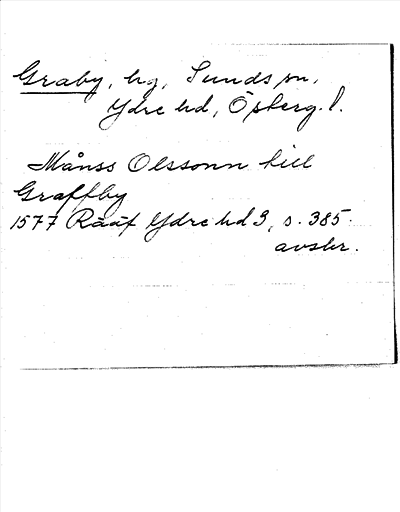 Graby, hg, Sunds sn,
Ydre hd, Öpberg. l.
Månss Olssonn till
Graffby
1577 Rääf Ydre hd 3, s. 385.
avskr.